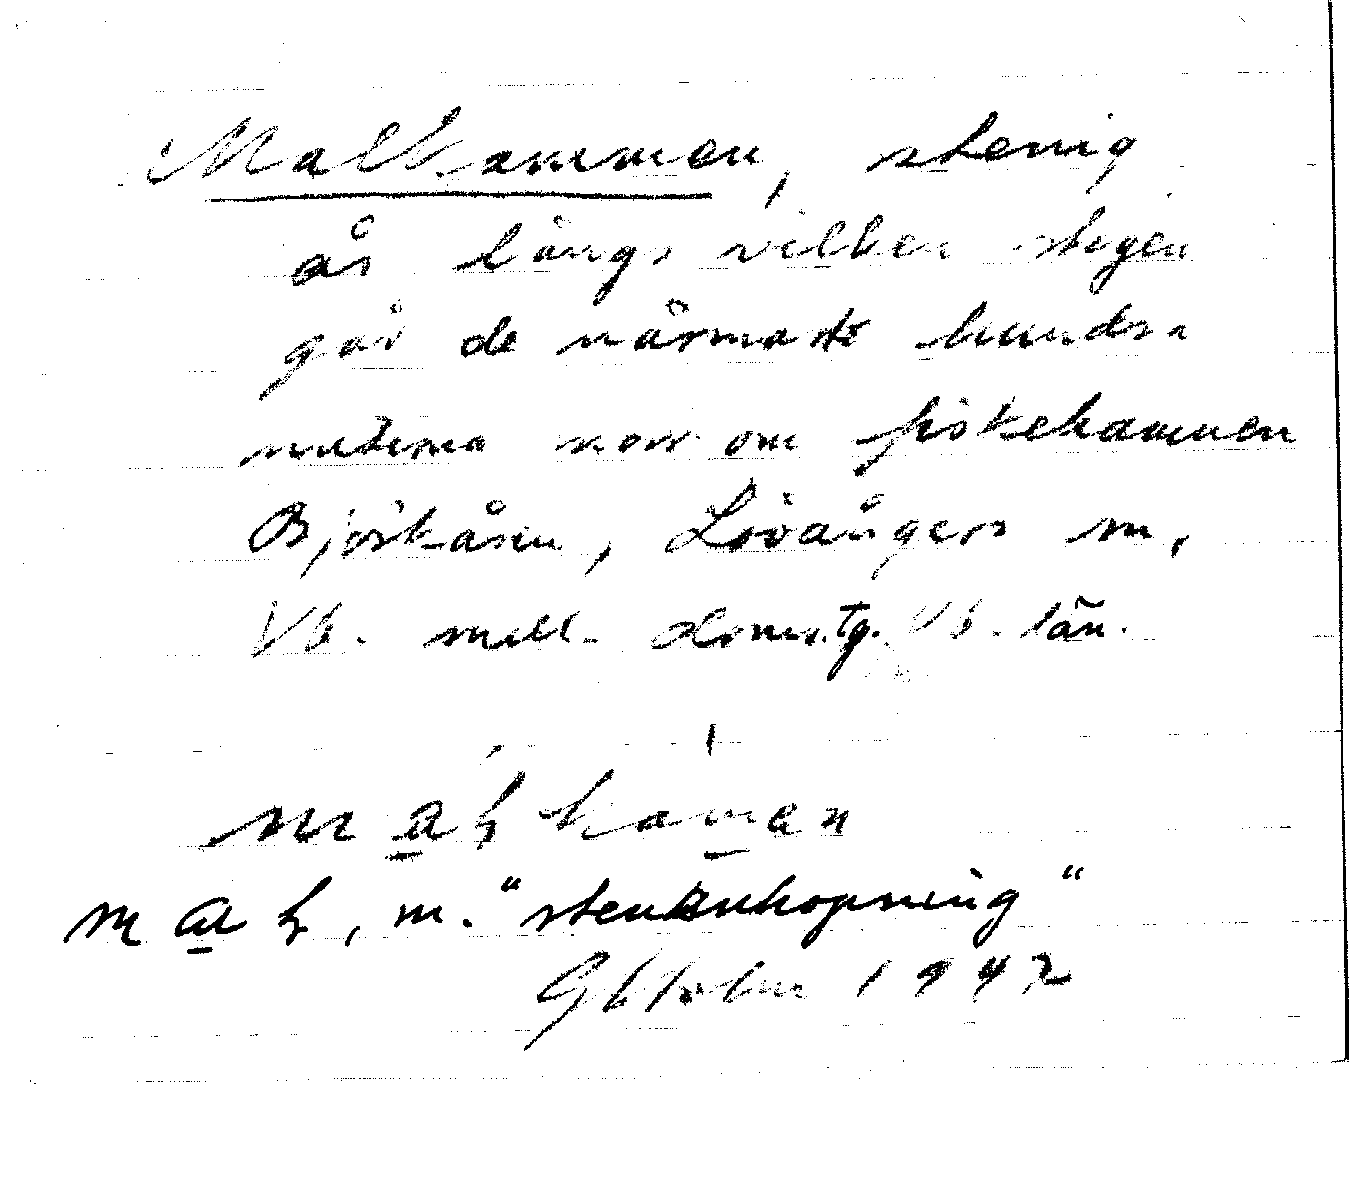 Malkammen, stenig
ås längs vilken stigen
går de närmaste hundra
metrna norr om fiskehamnen
Björkåsen, Lövångers sn,
Vb. mell. doms.tg. Vb. län.
kamen
m., "stenanhopning"
Oktober 1942